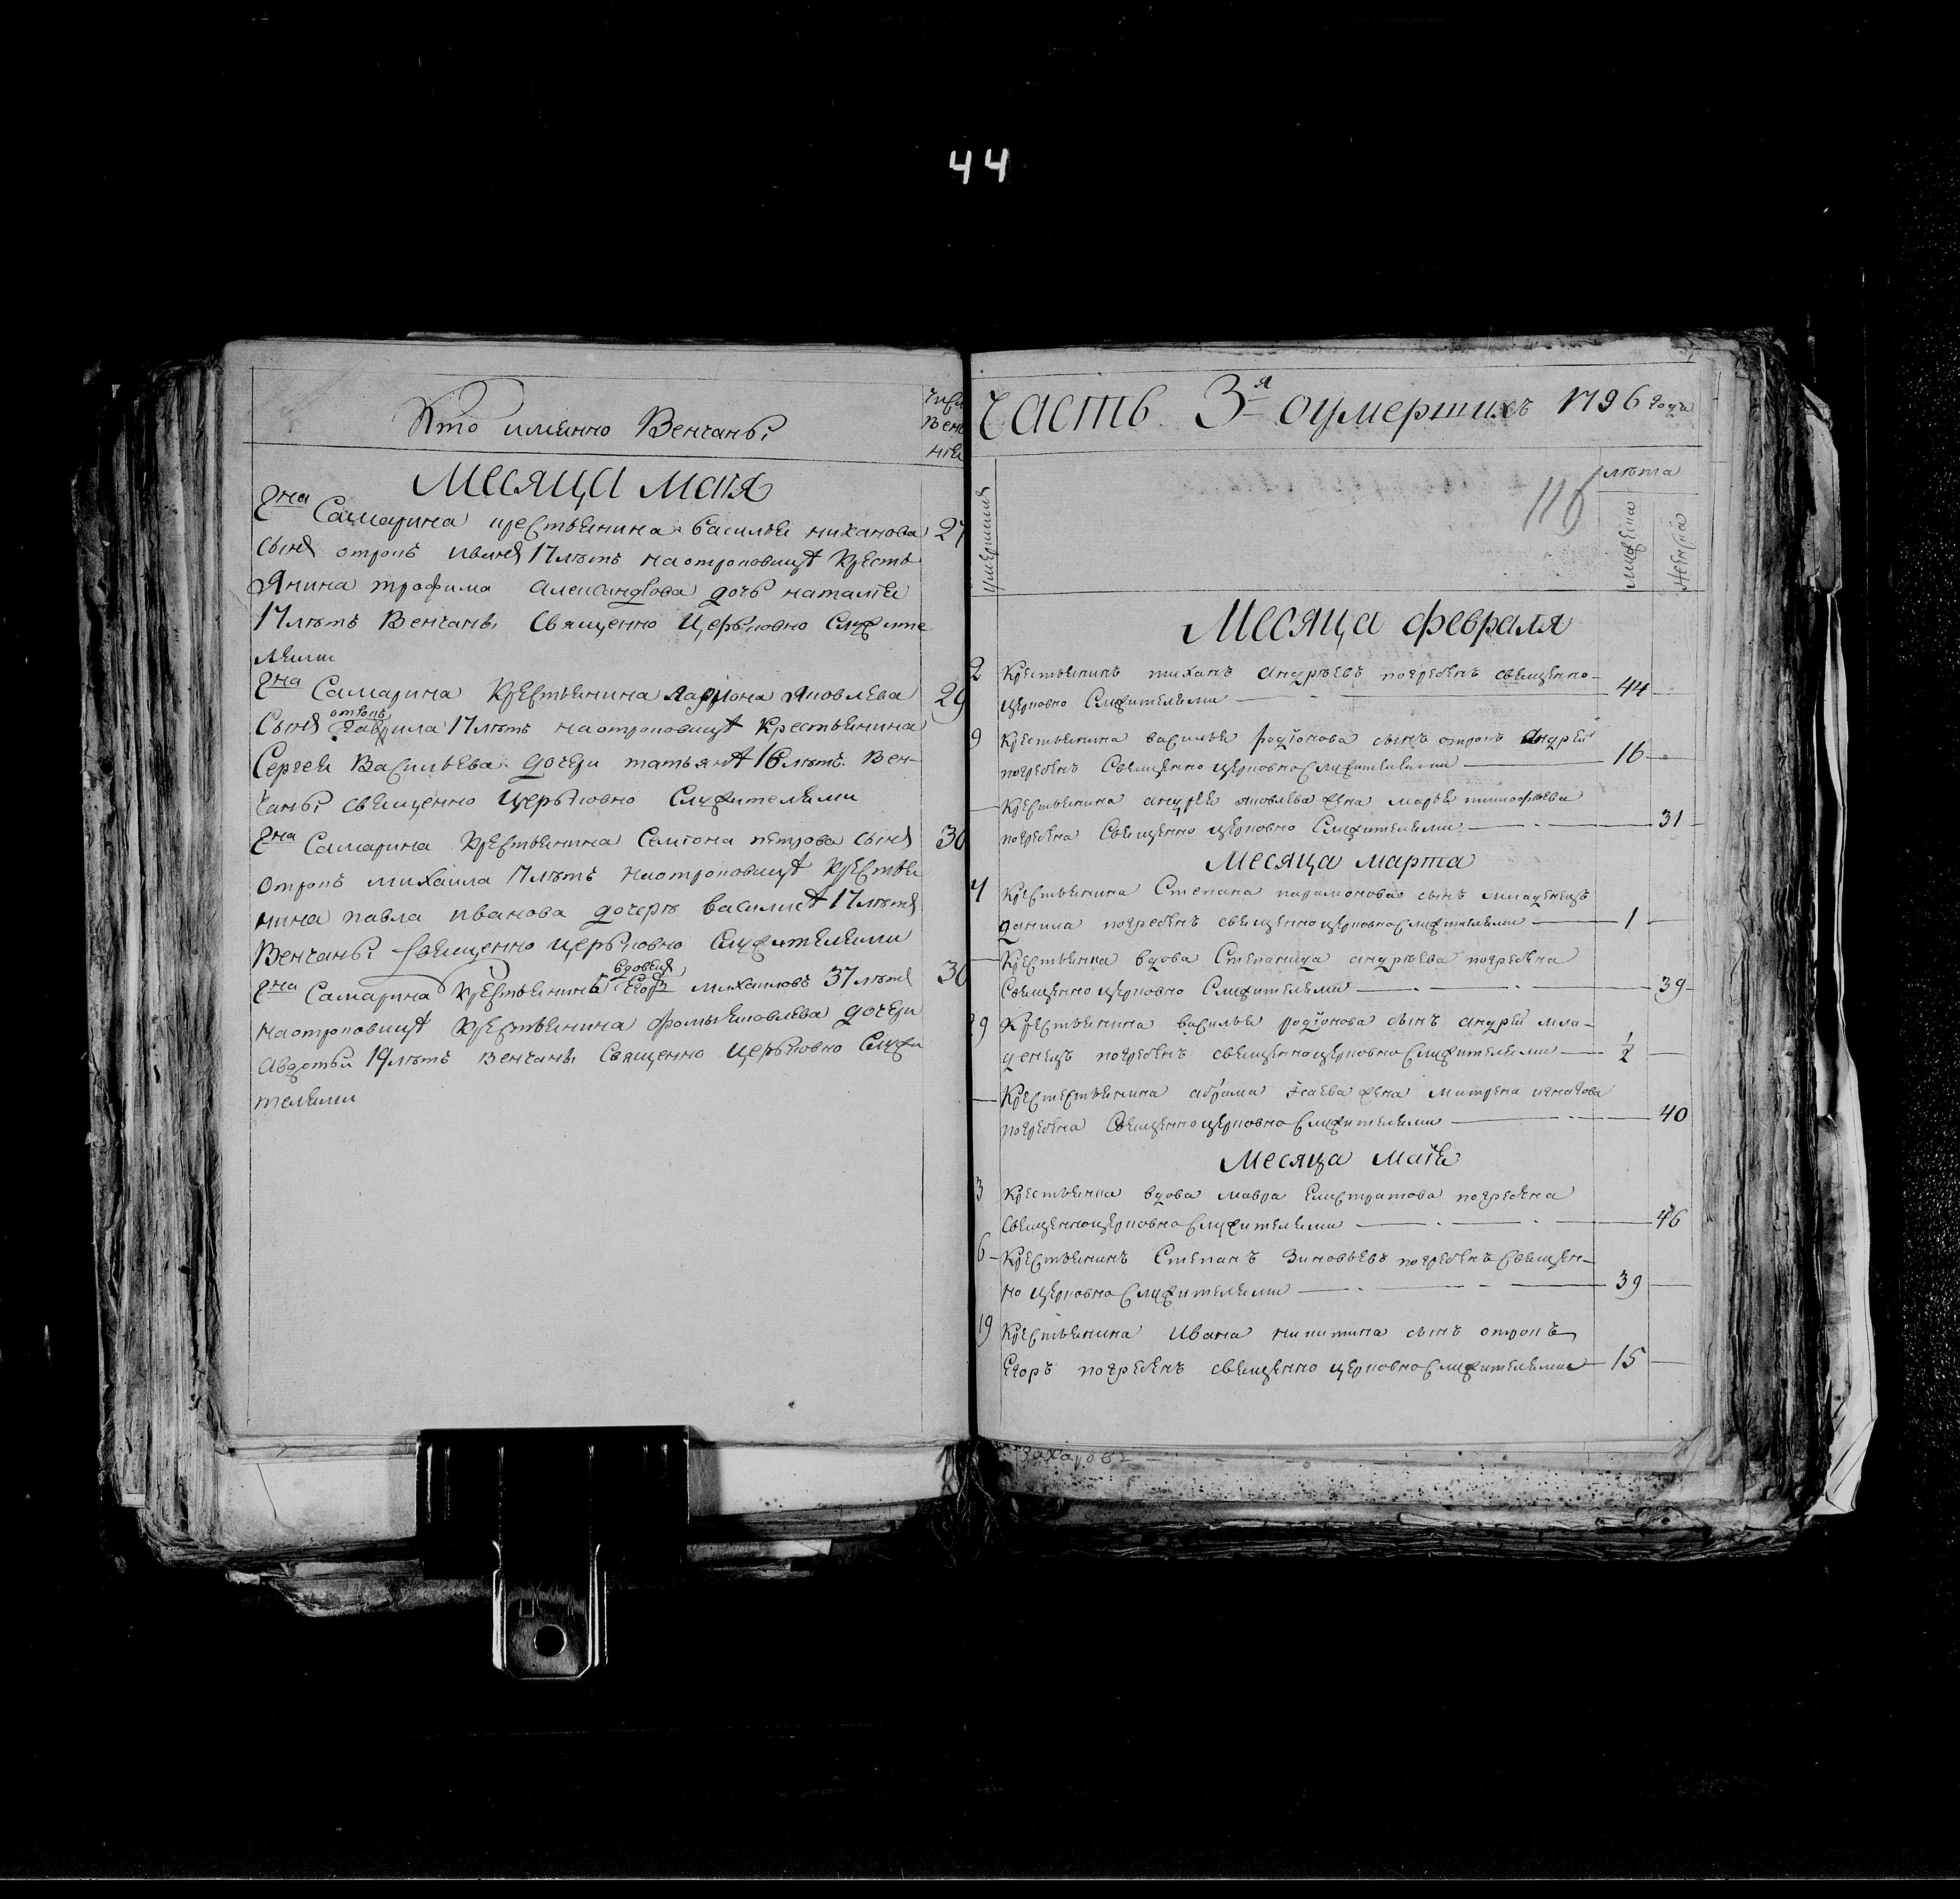 44
Кто имянно Венчаны
Месяца маія
Гна Самарина крестьянина василья тиханова 27
сына отрокъ иванъ 17 лѣтъ на отроковицѣ кресть
янина трофима александрова дочь наталіи
17 лѣтъ Венчаны Священно Церьковно Служите
лями
Гна Самарина крестьянина лариона яковлева 29
отрокъ
Сына гаврила 17 лѣтъ на отроковицѣ крестьянина
Сергея Васильева дочери татьянѣ 16 лѣтъ Вен-
чаны священно церьковно служителями
Гна Самарина крестьянина Семіона петрова сына 30
отрокъ михаила 17 лѣтъ на отроковицѣ крестья
нина павла иванова дочерѣ василисѣ 17 лѣтъ
Венчаны священно церьковно служителями
вдовецъ
Гна Самарина крестьянинъ Егоръ михаиловъ 37 лѣтъ 30
на отроковицѣ крестьянина фомы яковлева дочери
Авдотьи 19 лѣтъ венчаны Священно церьковно Служи
телями
часть 3я оумершихъ 1796 года
116
лѣта
умершия
мужеска
женска
Месяца февраля
2 Крестьянинъ тиханъ андрѣевъ погребенъ священно-
церковно Служителями 44
9 Крестьянина василья родіонова сынъ отрокъ андрей
погребенъ Священно церковно Служителями 16
Крестьянина андрея яковлева жена марья тимофѣева
погребена Священно церковно Служителями 31
Месяца марта
4 Крестьянина Степана парамонова сынъ младенецъ
данила погребенъ священно церковно Служителями 1
Крестьянка вдова Степанида андрѣева погребена
Священно церковно Служителями 39
29 Крестьянина василья родіонова сынъ андрей мла-
денецъ погребенъ священно церковно Служителями 1/2
Крестестьянина абрама ісаева жена матрена игнатова
погребена Священно церковно Служителями 40
Месяца маія
3 Крестьянка вдова мавра Елистратова погребена
Священно церковно Служителями 46
6 Крестьянинъ Степанъ Зиновьевъ погребенъ Священ-
но церковно Служителями 39
19 Крестьянина Ивана никитина сынъ отрокъ
Егоръ погребенъ священно церковно Служителями 15
Захаровъ